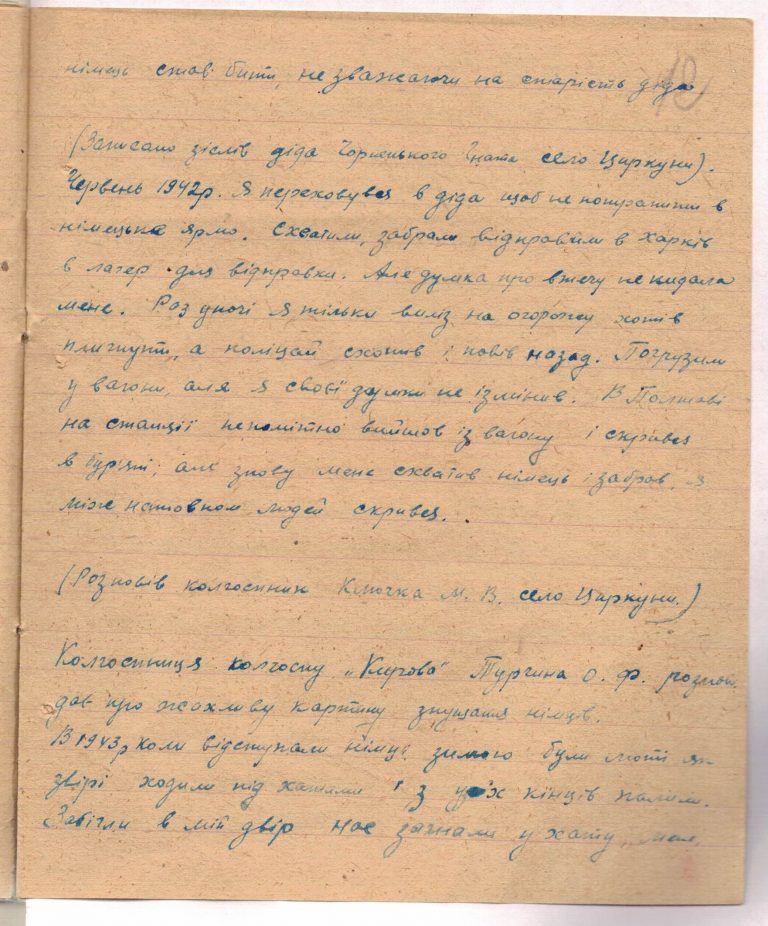 10
німець став бити, не зважаючи на старість діда
(Записано зіслів діда Чорненького Гната село Циркуни).
Червень 1942р. Я переховувся в діда щоб не потрапити в
німецьке ярмо. Схватили, забрали відправили в Харків
в лагер для відправки. Але думка про втечу не кидала
мене. Раз уночі я тільки виліз на огорожу хотів
плигнути, а поліцай схопив і повів назад. Погрузили
у вагони, але я свої думки не ізмінив. В Полтаві
на станції непомітно вийшов із вагону і скрився
в бур'яні, але знову мене схватив німець і забрав, я
між натовпом людей скрився.
(Розповів колгоспник Клочка М. В. село Циркуни.)
Колгоспниця колгоспу „Кірова" Тургина О. Ф. розпові
дає про жахливу картину знущання німців.
В 1943р коли відступали німці зимою були люті як
звірі ходили під хатами і з усіх кінців палили.
Забігли в мій двір нас загнали у хату, мене,